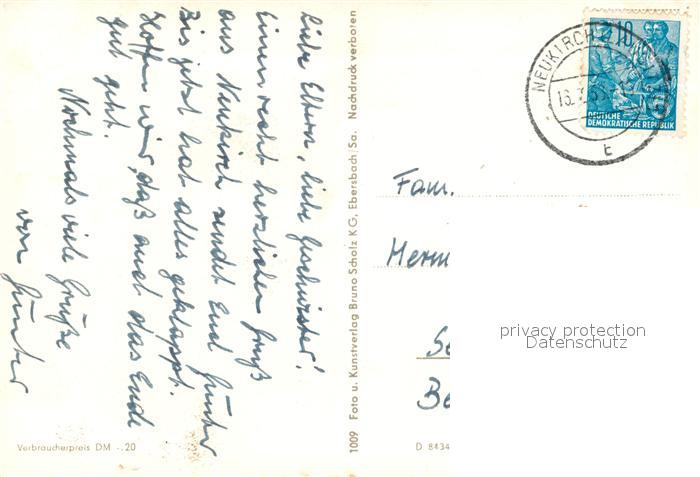 Liebe Eltern, liebe Geschwister!
Einen recht herzlichen Gruß
aus Neukirch sendet Euch Günter
Bis jetzt hat alles geklappt.
Hoffen wir, daß auch das Ende
gut geht.
Nochmals viele Grüße
von Günter
Verbraucherpreis DM -.20
1009 Foto u. Kunstverlag Bruno Scholz KG, Ebersbach/Sa. Nachdruck verboten
NEUKIRCH
10
DEUTSCHE
DEMOKRATISCHE REPUBLIK
t
Fam.
Herm
Be
D 8434
privacy protection
Datenschutz